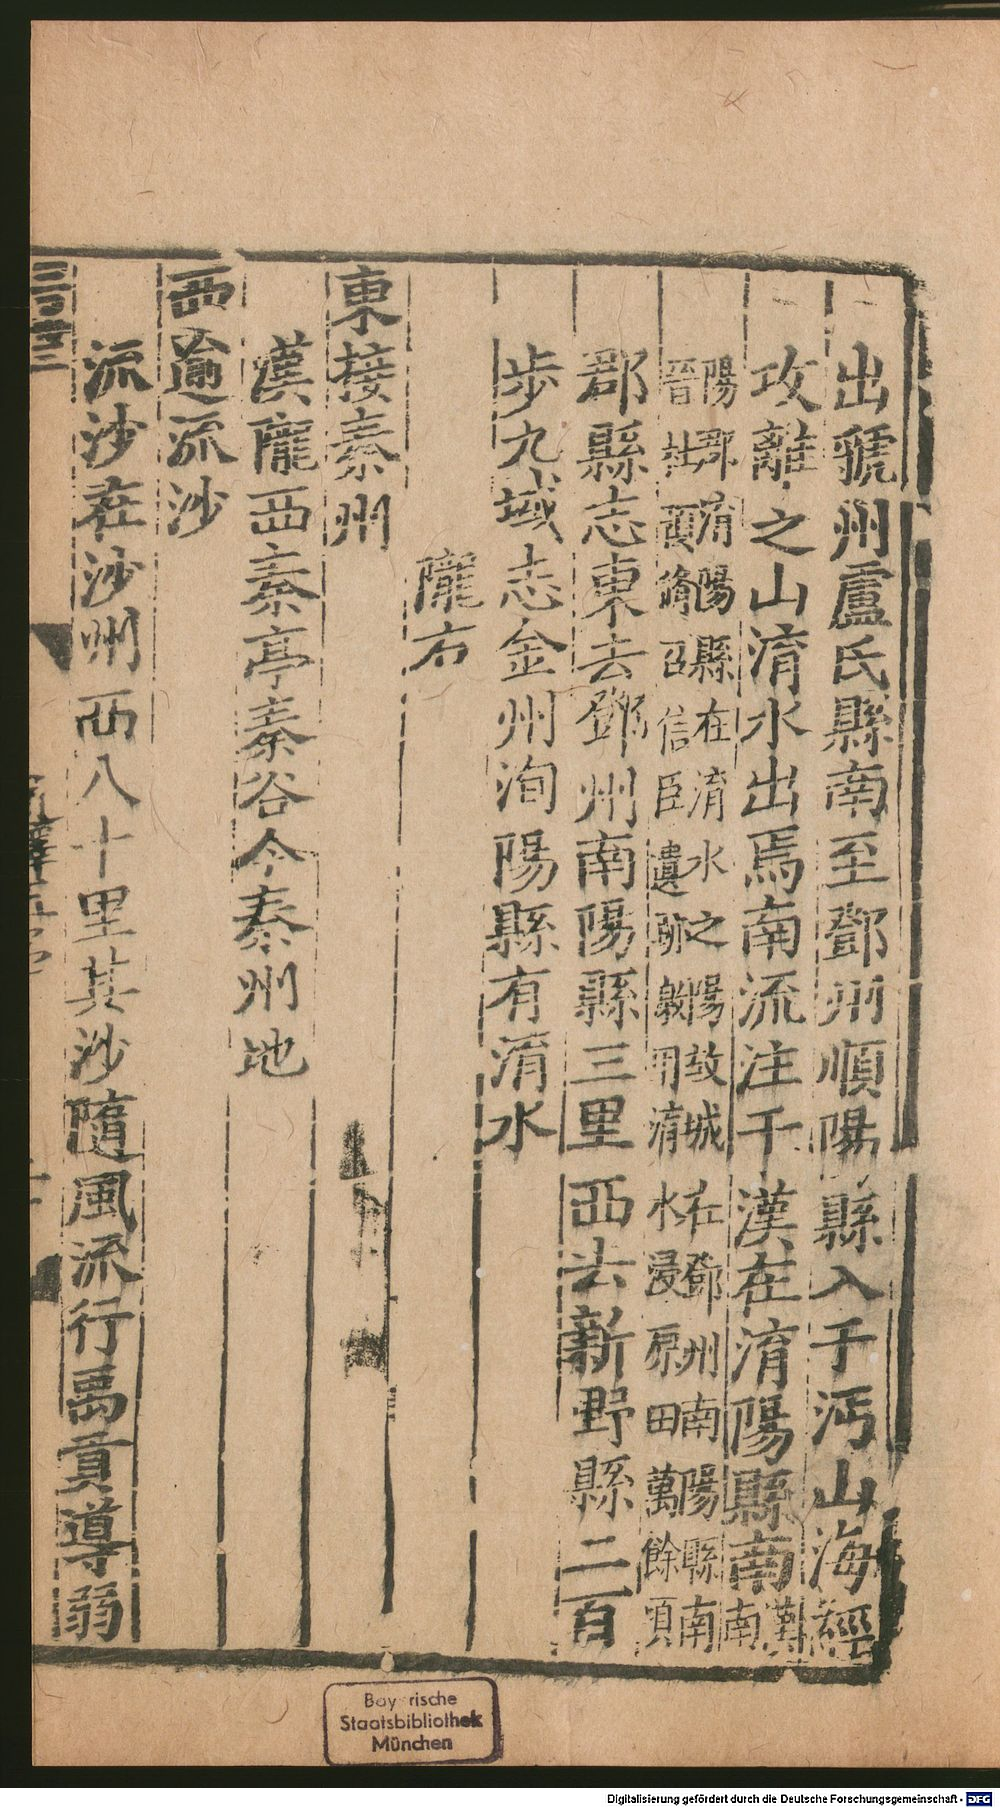 出虢州盧氏縣南至鄧州順陽縣入于沔山海經
攻離之山淯水出焉南流注于漢在淯陽縣南漢南
陽郡淯陽縣在淯水之陽故城在鄧州南陽縣南
晉杜預脩召信臣遺跡激用淯水浸原田萬餘頃
郡縣志東去鄧州南陽縣三里西去新野縣二百
步九域志金州洵陽縣有淯水
隴右
東接秦州
漢隴西秦亭秦谷今秦州地
西逾流沙
流沙在沙州西八十里其沙隨風流行禹貢導弱
Bayerische
Staatsbibliothek
München
Digitalisierung gefördert durch die Deutsche Forschungsgemeinschaft - DFG